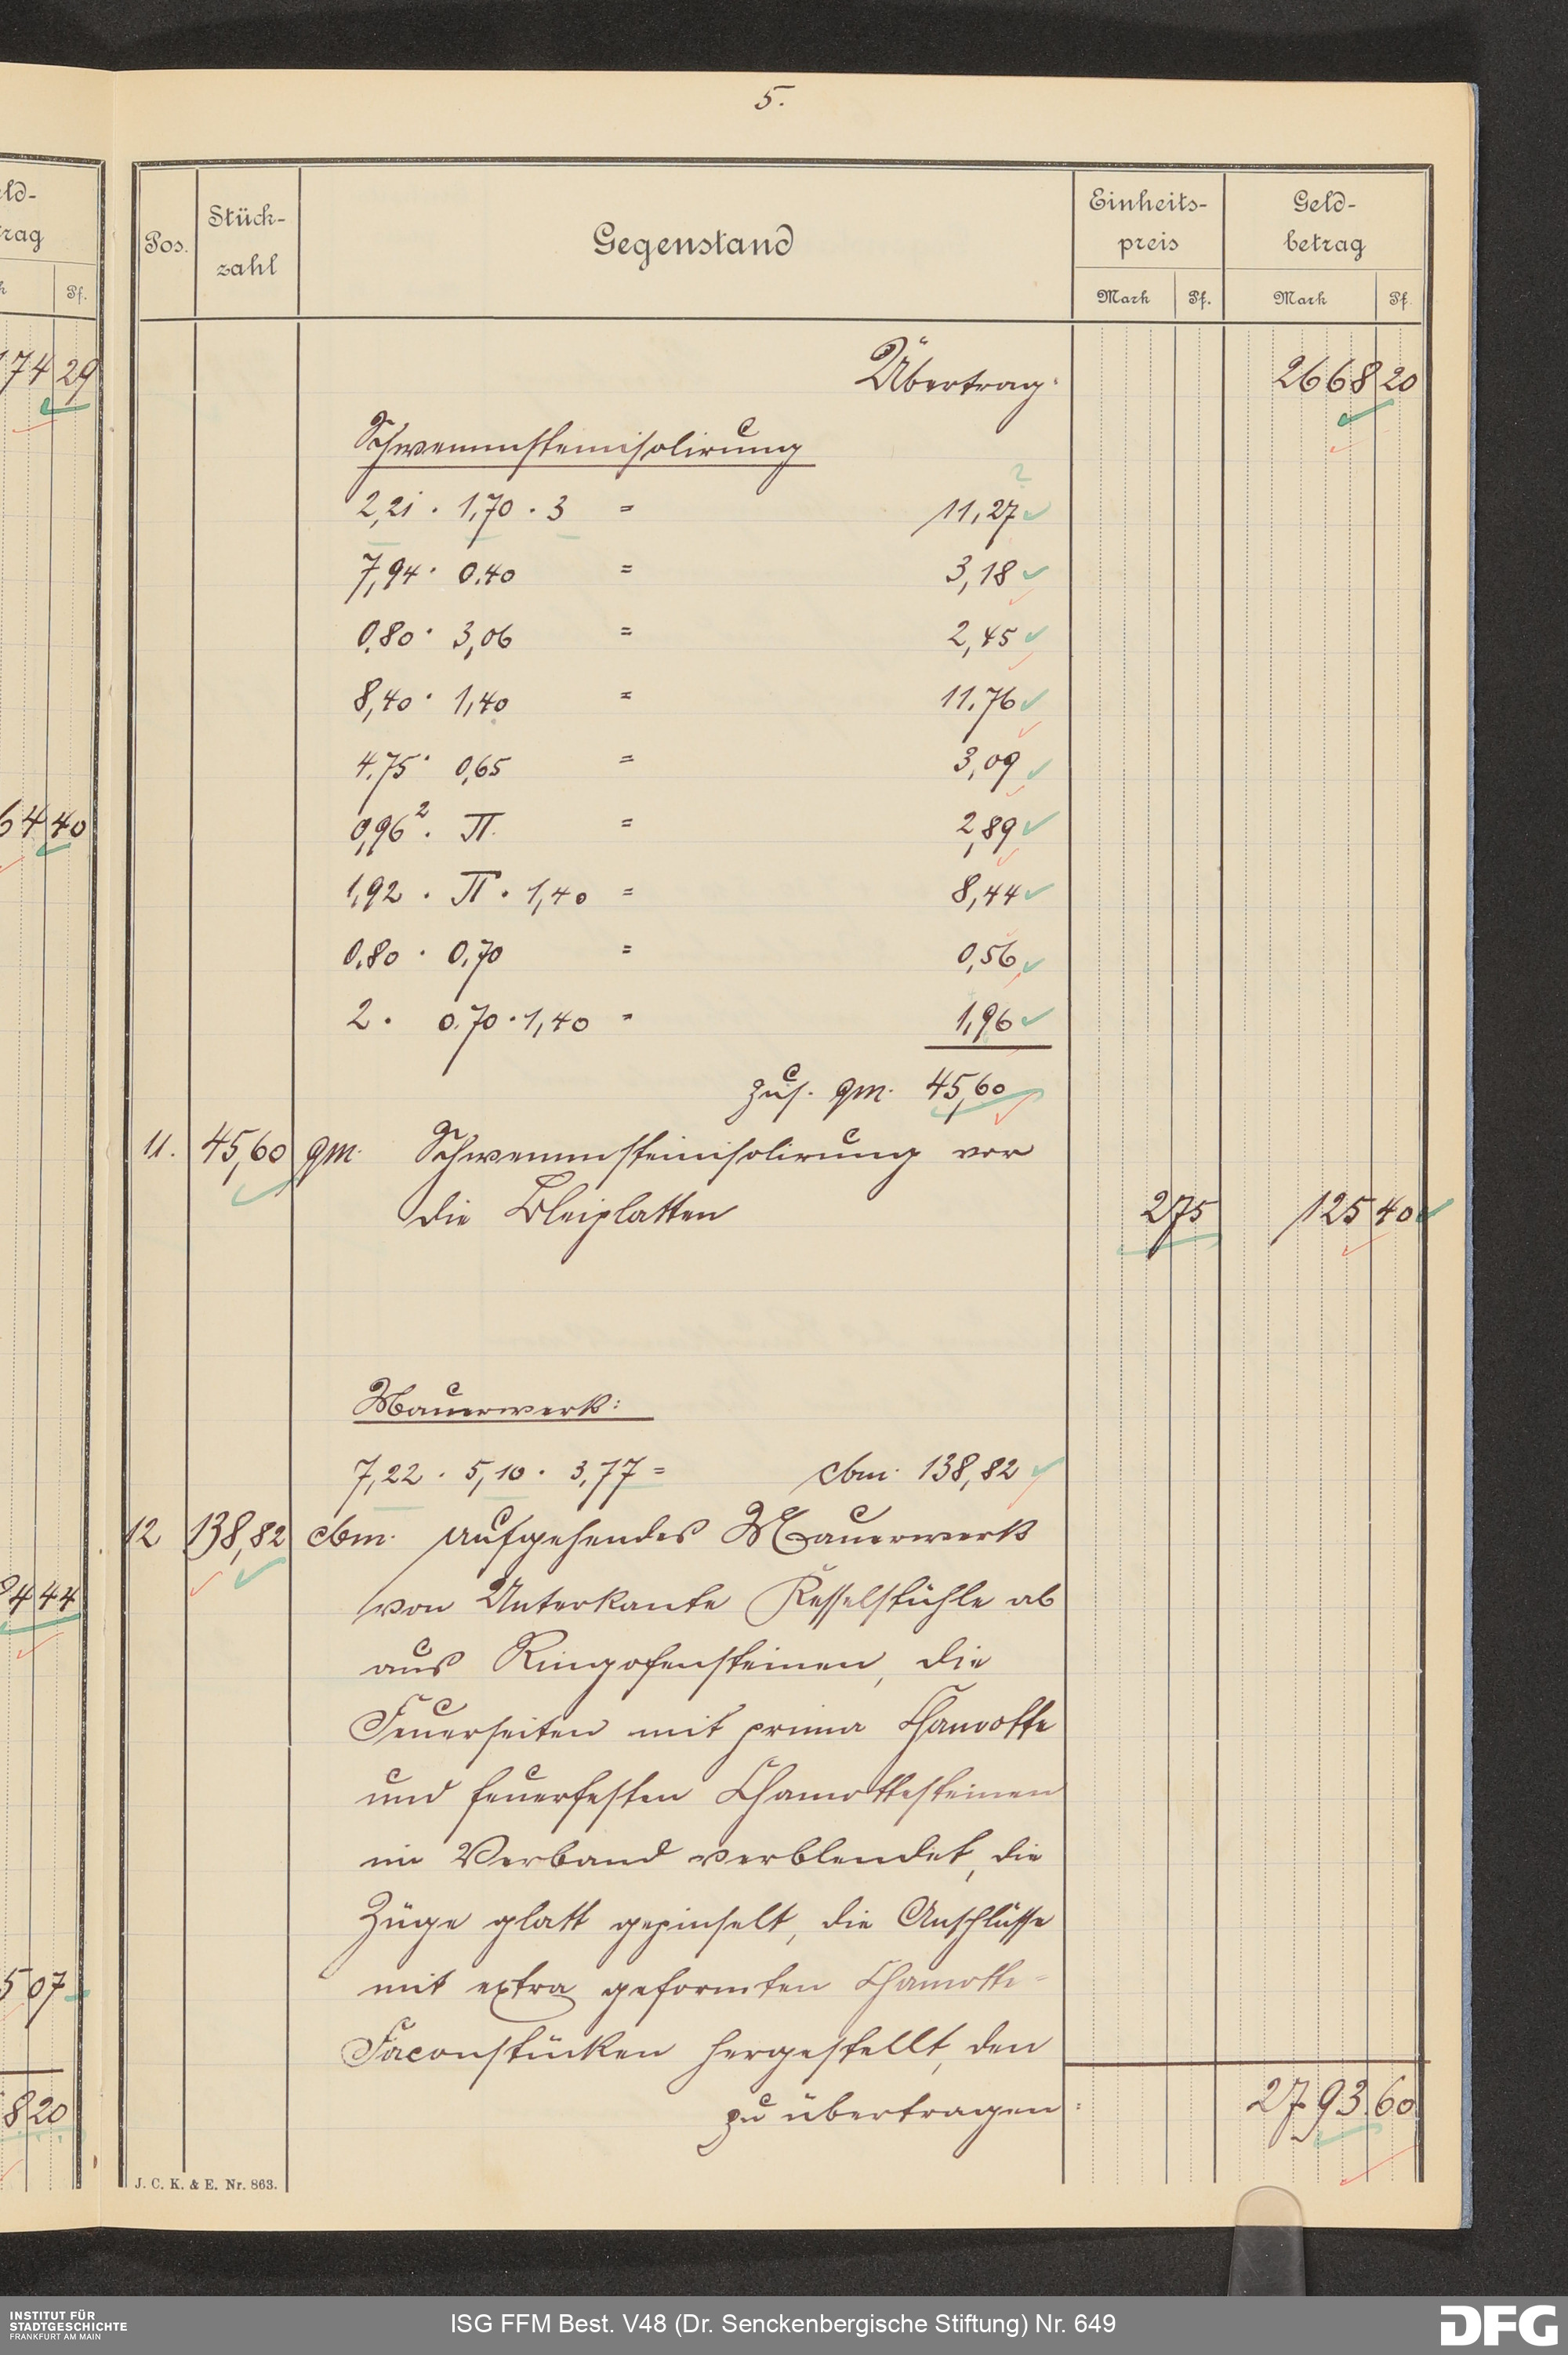 5.
eld-
trag
Pf.
174 29
64 40
94 44
5 07
820
Pos.
Stück-
zahl
Gegenstand
Einheits-
preis
Geld-
betrag
Mark Pf. Mark Pf
Übertrag: 2668 20
Schwemmsteinisolirung
?
2,21 · 1,70 · 3 = 11,27
7,94 · 0.40 = 3,18
0.80 · 3,06 = 2,45
8,40 · 1,40 = 11.76
4.75 · 0,65 = 3,09
0,96² · π. = 2,89
1,92 · π · 1,40 = 8,44
0.80 · 0.70 = 0,56
2 · 0.70 · 1,40 = 1,96
zus. qm. 45,60
11. 45,60 qm. Schwemmsteinisolirung vor
die Bleiplatten 2 75 125 40
Mauerwerk:
7,22 · 5,10 · 3,77 = cbm. 138,82
12 138,82 cbm. aufgehendes Mauerwerk
von Unterkante Kesselstühle ab
aus Ringofensteinen, die
Feuerseiten mit prima Chamotte
und feuerfesten Chamottesteinen
im Verband verblendet, die
Züge glatt gepinselt, die Anschlüsse
mit extra geformten Chamotte-
Faconstücken hergestellt, den
zu übertragen: 2793.60
J. C. K. & E. Nr. 863.
INSTITUT FÜR
STADTGESCHICHTE
FRANKFURT AM MAIN
ISG FFM Best. V48 (Dr. Senckenbergische Stiftung) Nr. 649
DFG